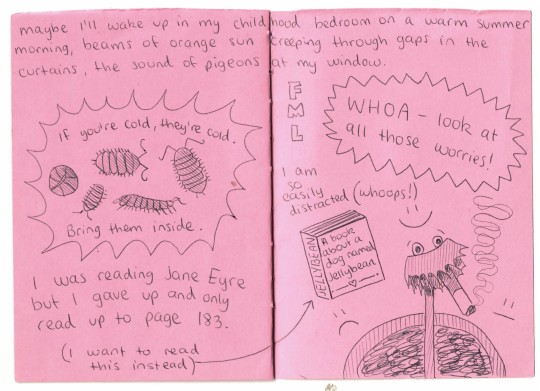 maybe I'll wake up in my childhood bedroom on a warm summer
morning, beams of orange sun creeping through gaps in the
curtains, the sound of pigeons at my window.
If you're cold, they're cold.
Bring them inside.
I was reading Jane Eyre
but I gave up and only
read up to page 183.
(I want to read
this instead)
FML
WHOA - look at
all those worries!
I am
so
easily
distracted (whoops!)
JELLYBEAN
A book
about a
dog named
Jellybean